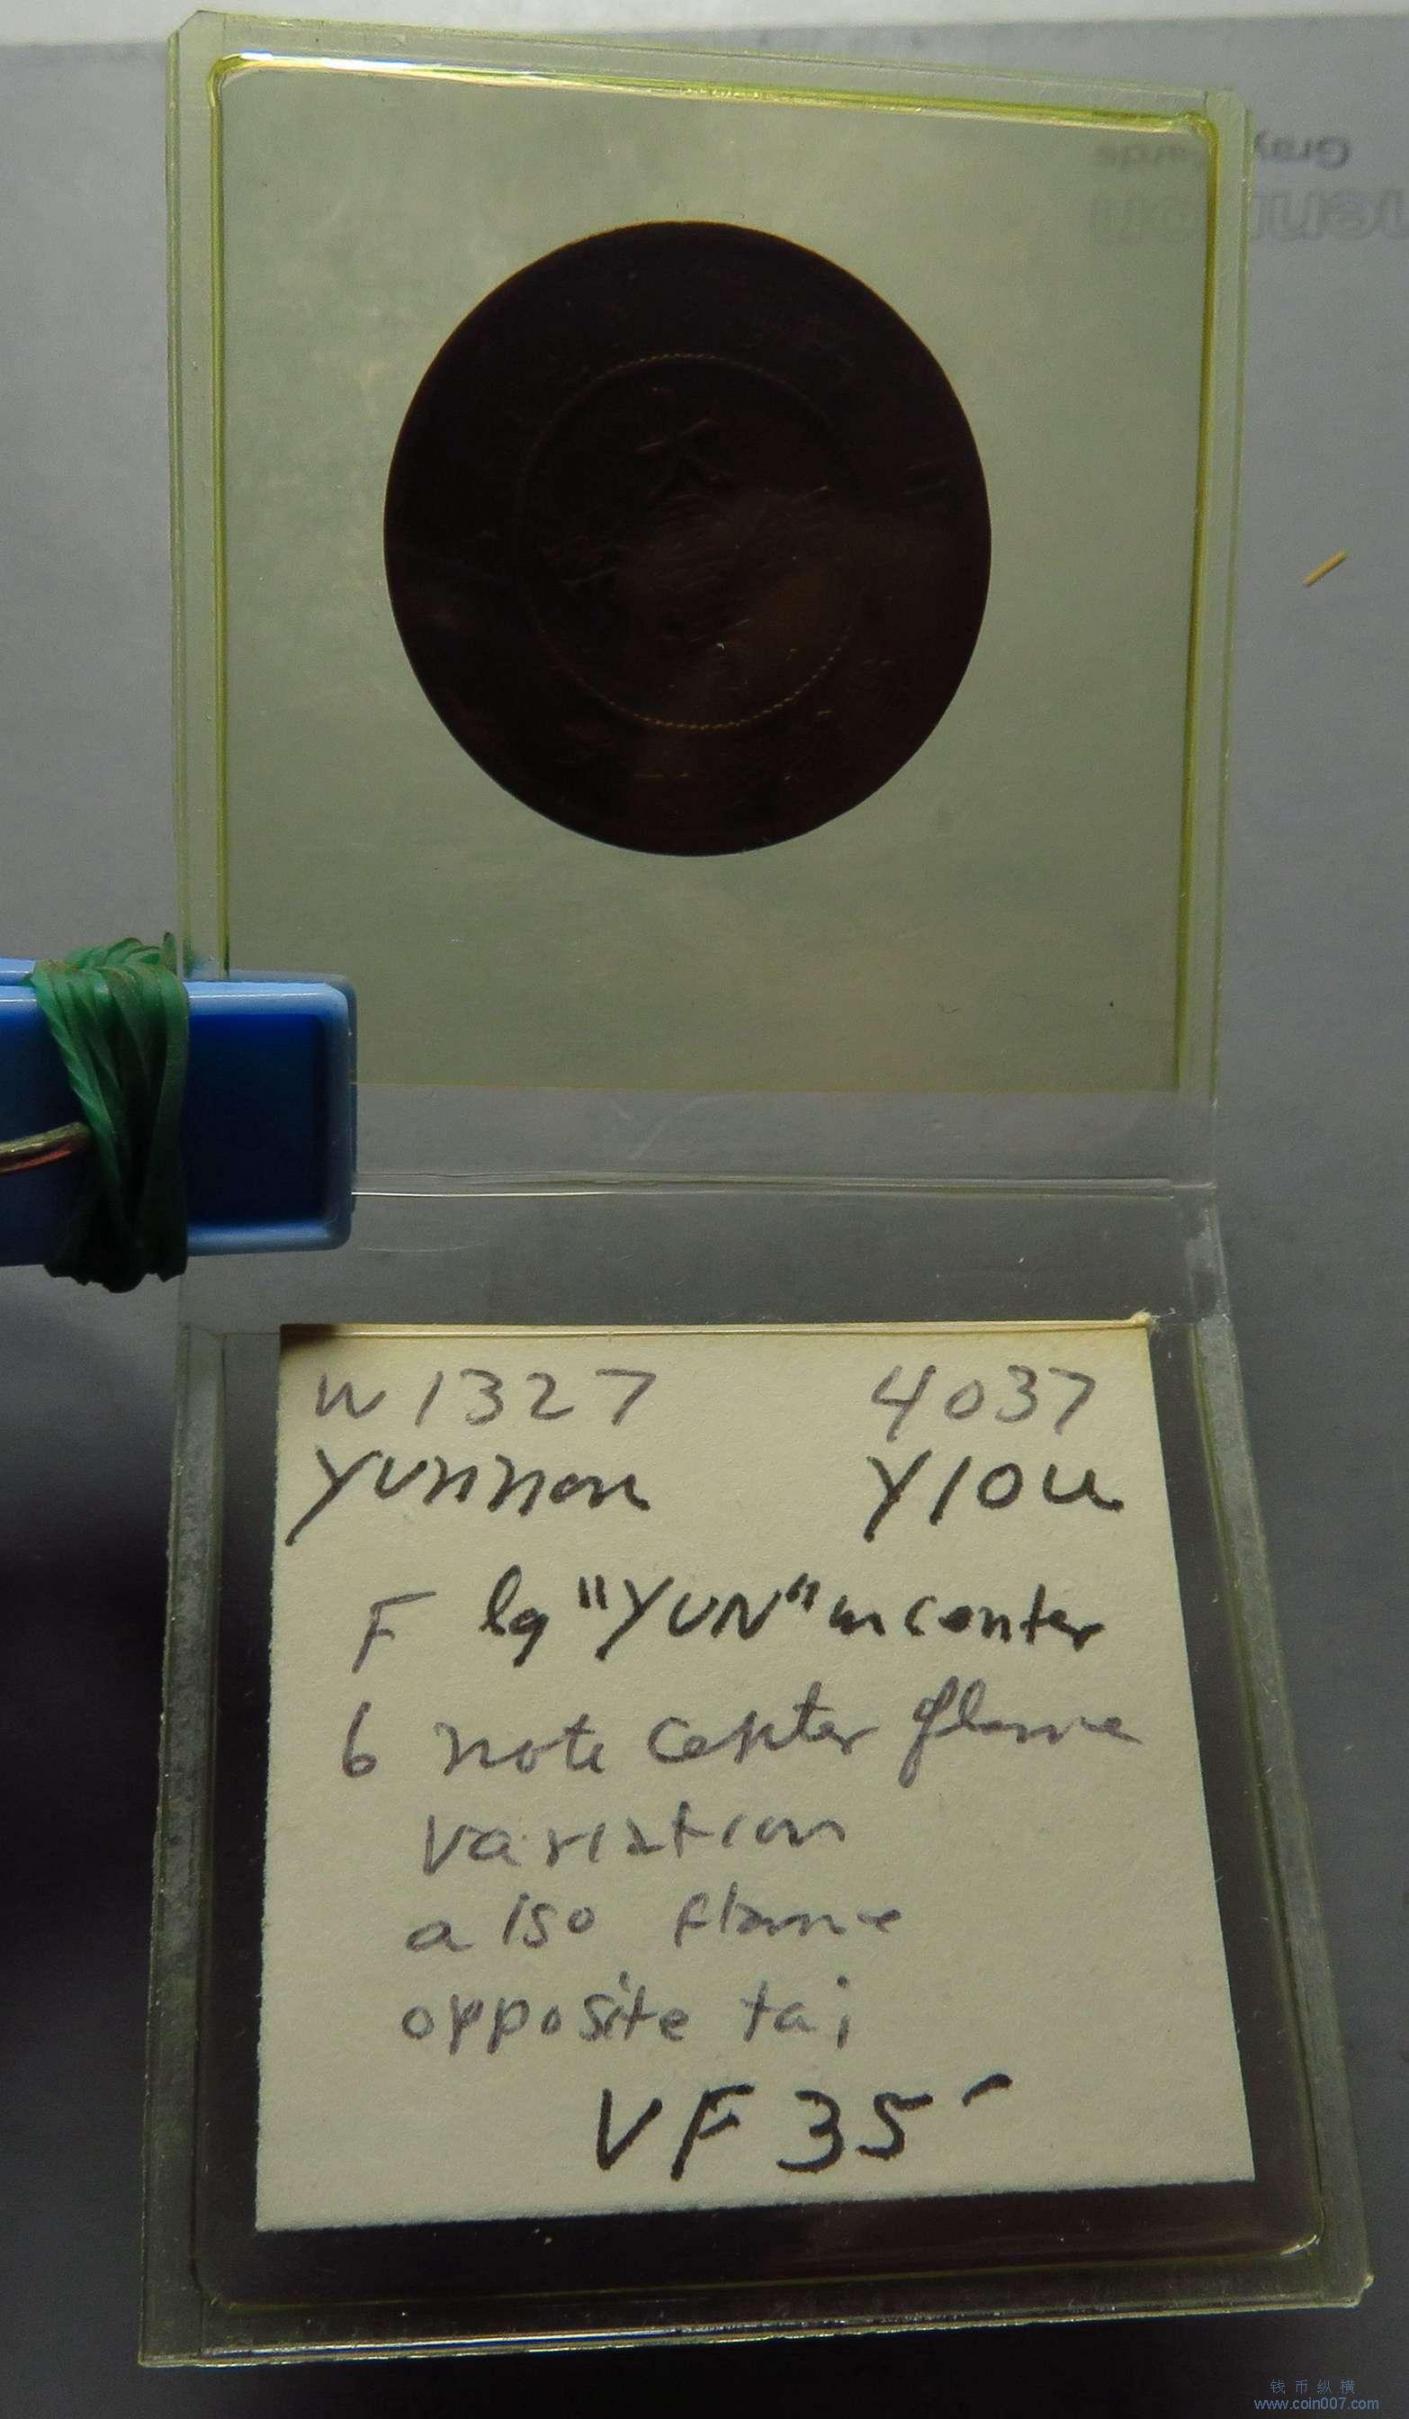 大
W1327 4037
Yunnan Y10u
F lg "YUN" in center
6 note center flame
variation
also flame
opposite tai
VF35-
钱币纵横
www.coin007.com